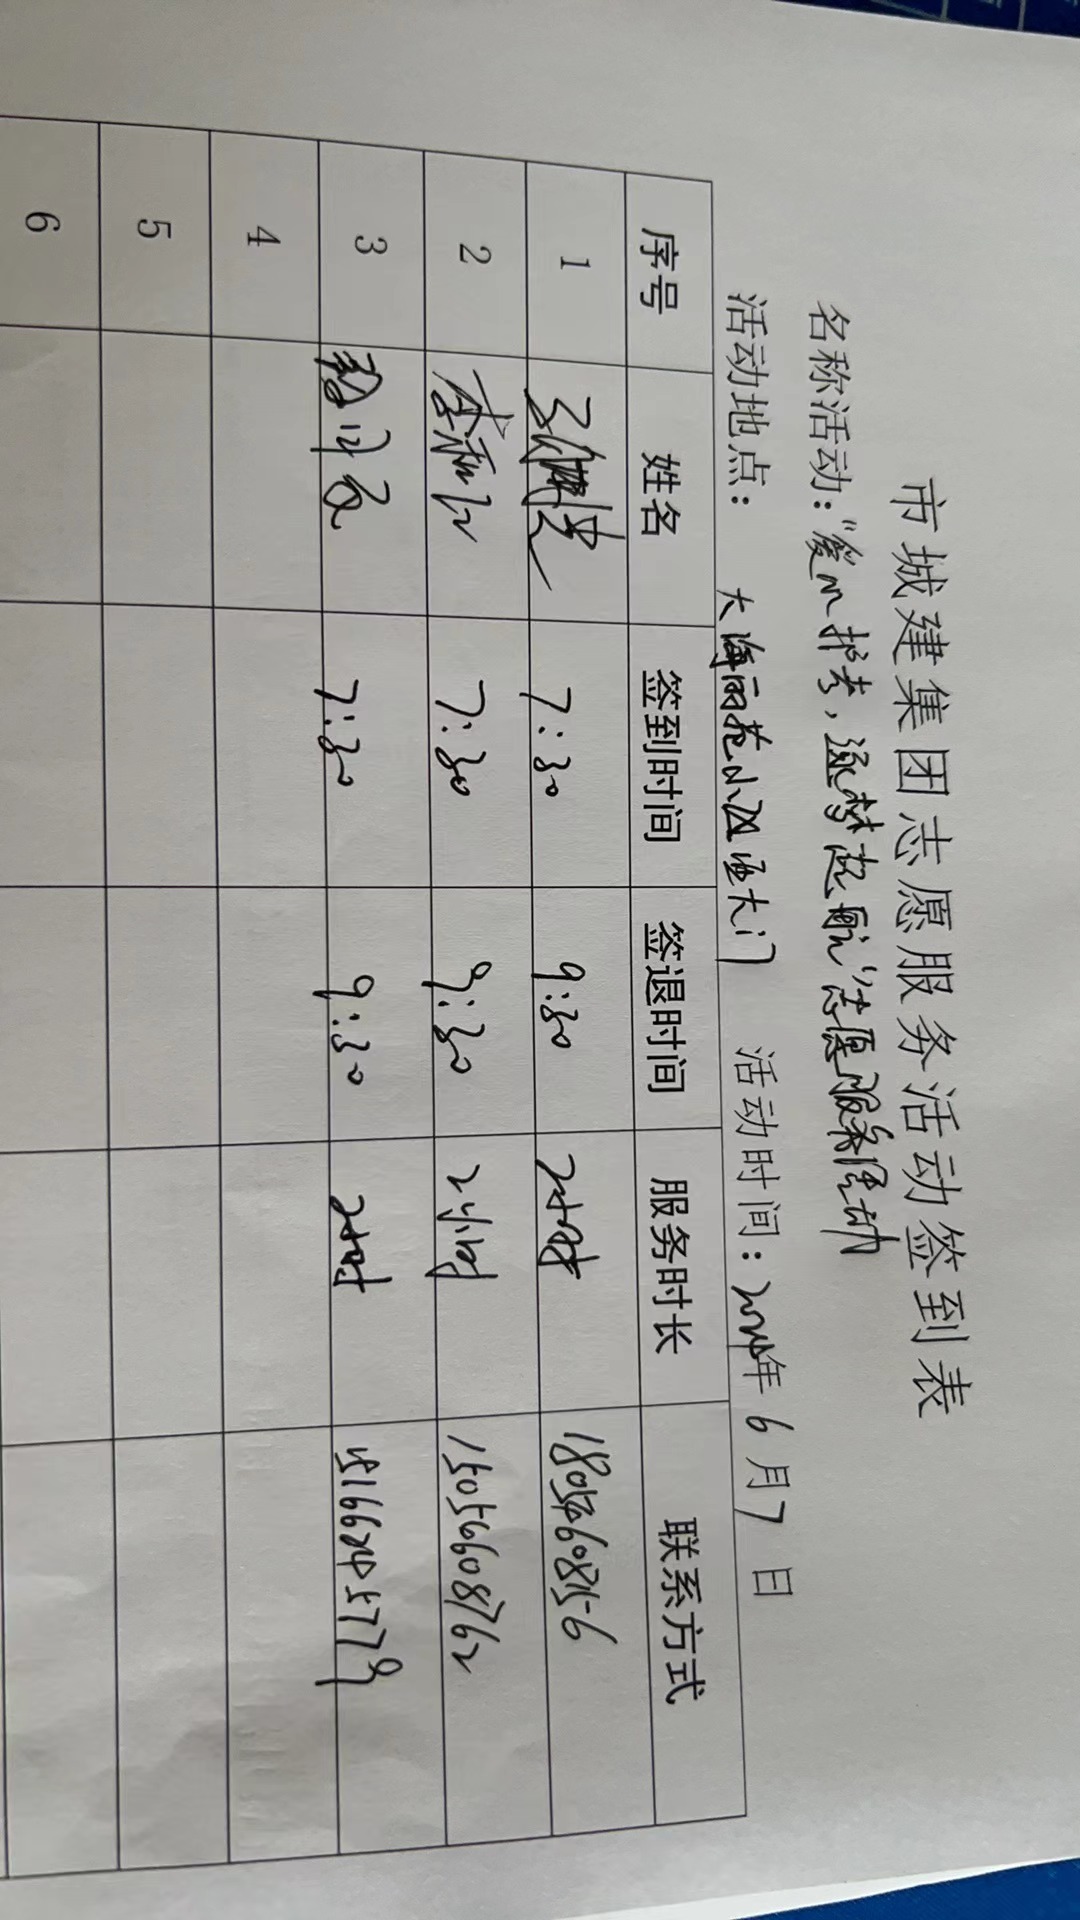 市城建集团志愿服务活动签到表
名称活动：“爱心护考，逐梦起航”志愿服务活动
活动地点： 大海丽苑小区西大门 活动时间：2024年 6月7日
序号 姓名 签到时间 签退时间 服务时长 联系方式
1 7:30 9:30 2小时
2 7:30 9:30 2小时 15056608762
3 7:30 9:30 2小时
4
5
6